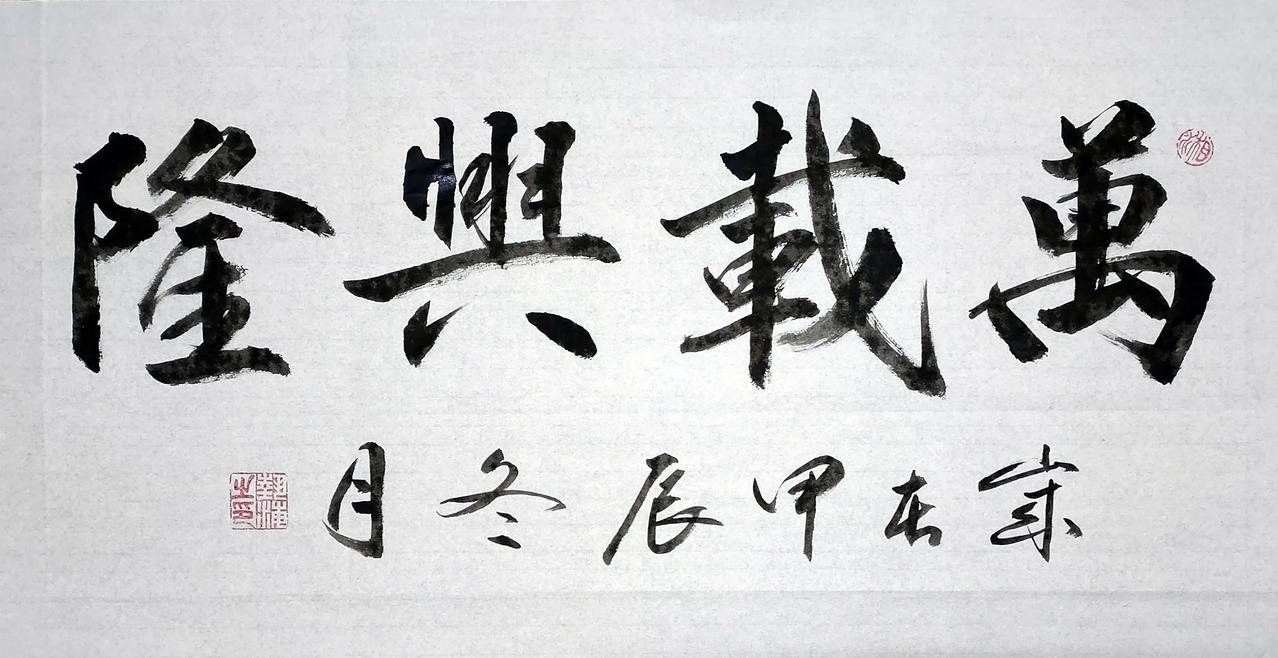 萬載興隆
歲在甲辰冬月